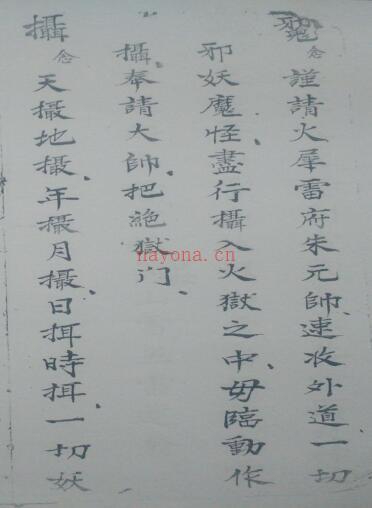 念 謹請火犀雷府朱元帥速收外道一切
邪妖魔怪盡行攝入火獄之中毋臨動作
攝奉請大帥把絕獄门
攝 念 天攝地攝年攝月攝日挕時挕一切妖
nayona.cn